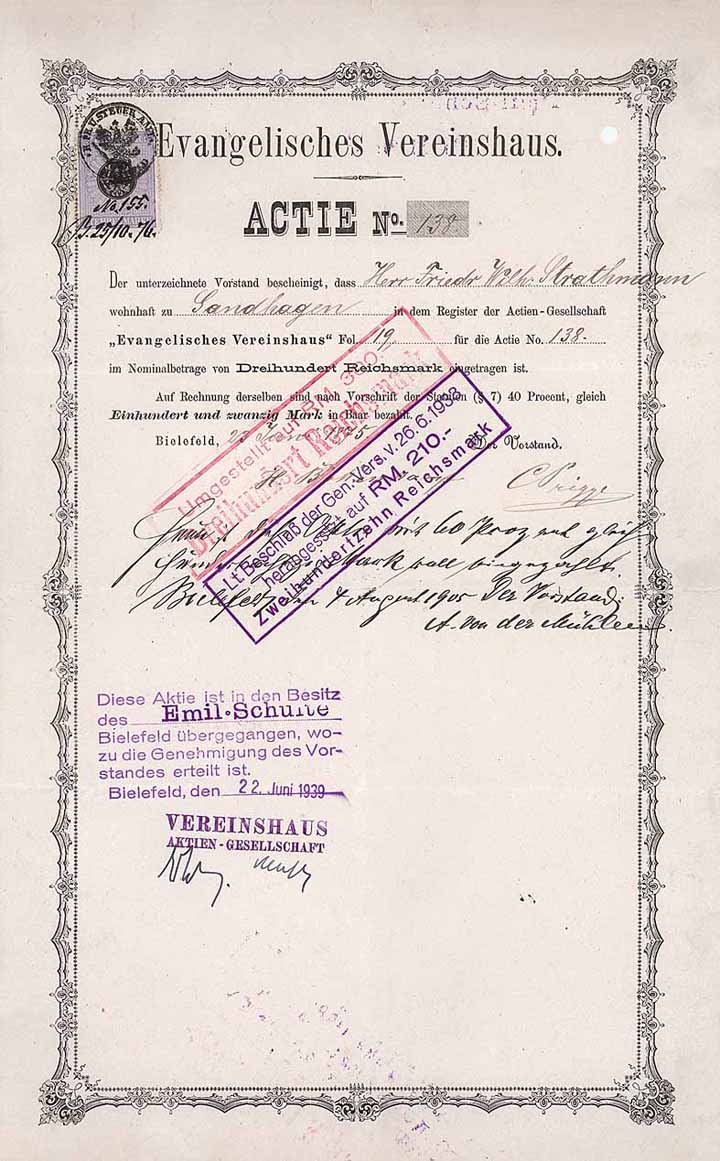 Evangelisches Vereinshaus.
No. 155.
B. 25/10. 76.
ACTIE No. 138
Der unterzeichnete Vorstand bescheinigt, dass Herr Friedr Wilh. Strathmann
wohnhaft zu Sandhagen in dem Register der Actien-Gesellschaft
„Evangelisches Vereinshaus" Fol. 19 für die Actie No. 138.
im Nominalbetrage von Dreihundert Reichsmark eingetragen ist.
Auf Rechnung derselben sind nach Vorschrift der Statuten (§ 7) 40 Procent, gleich
Einhundert und zwanzig Mark in Baar bezahlt.
Bielefeld, Der Vorstand.
Umgestellt auf RM 300
Dreihundert Reichsmark
Lt Beschluß der Gen. Vers. v. 26.6.1938
herabgesetzt auf RM. 210.-
Zweihundertzehn Reichsmark
mit 60 Prozent gleich
Mark voll eingezahlt.
Bielefeld den 4 August 1905 Der Vorstand:
A. von der Mühlen
Diese Aktie ist in den Besitz
des Emil Schulte
Bielefeld übergegangen, wo-
zu die Genehmigung des Vor-
standes erteilt ist.
Bielefeld, den 22. Juni 1939
VEREINSHAUS
AKTIEN-GESELLSCHAFT